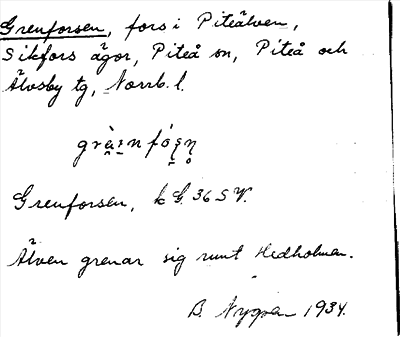 Grenforsen, fors i Piteälven,
Sikfors ägor, Piteå sn, Piteå och
Älvsby tg, Norrb. l.
Grenforsen, k G. 36 SV.
Älven grenar sig runt Hedholmen.
B. Nygren 1934.